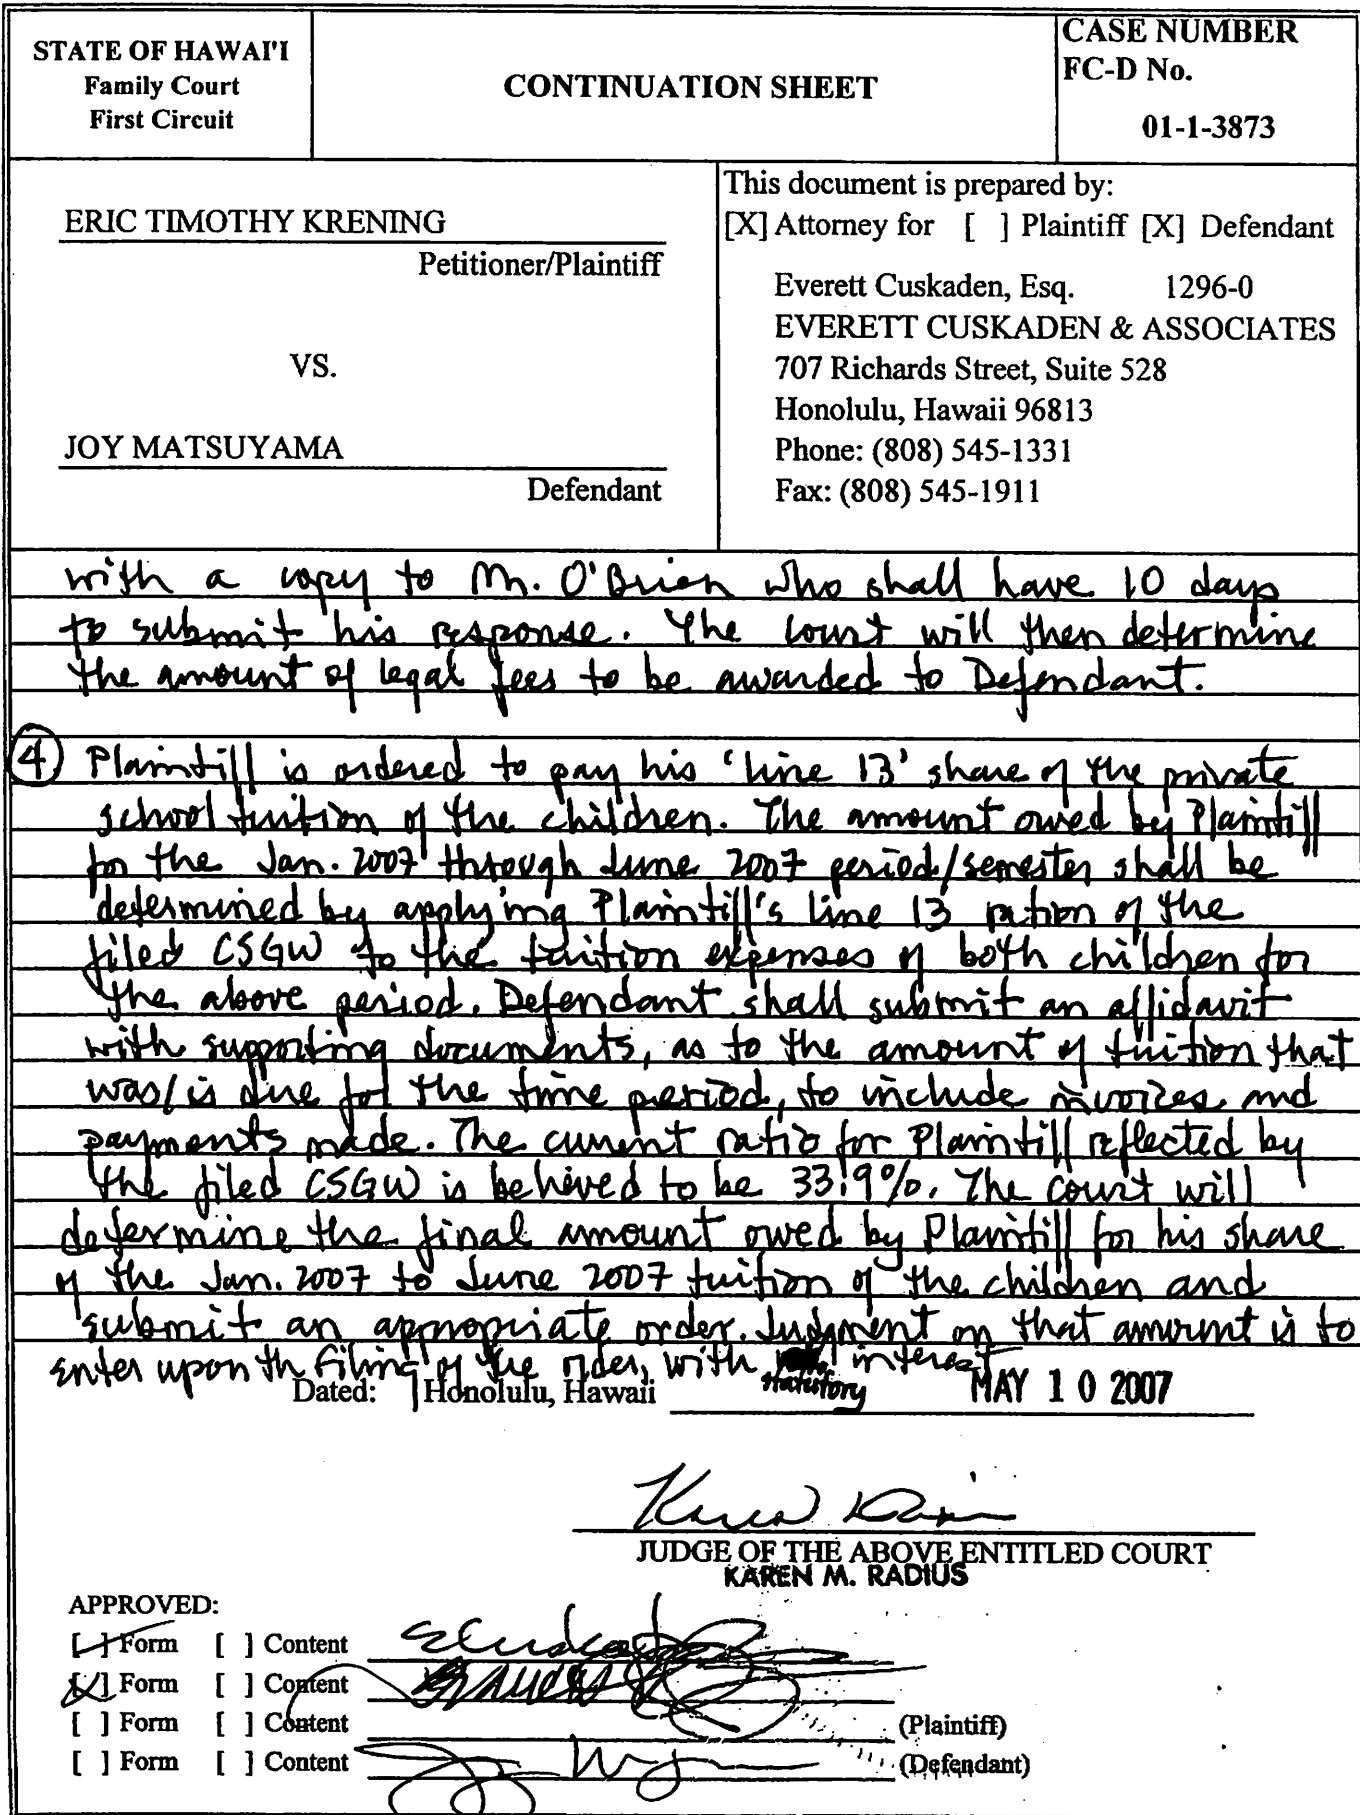 STATE OF HAWAI'I
Family Court
First Circuit
CONTINUATION SHEET
CASE NUMBER
FC-D No.
01-1-3873
ERIC TIMOTHY KRENING
Petitioner/Plaintiff
VS.
JOY MATSUYAMA
Defendant
This document is prepared by:
[X] Attorney for [ ] Plaintiff [X] Defendant
Everett Cuskaden, Esq. 1296-0
EVERETT CUSKADEN & ASSOCIATES
707 Richards Street, Suite 528
Honolulu, Hawaii 96813
Phone: (808) 545-1331
Fax: (808) 545-1911
with a copy to Mr. O'Brien who shall have 10 days
to submit his response. The court will then determine
the amount of legal fees to be awarded to Defendant.
(4) Plaintiff is ordered to pay his 'line 13' share of the private
school tuition of the children. The amount owed by Plaintiff
for the Jan. 2007 through June 2007 period/semester shall be
determined by applying Plaintiff's line 13 ration of the
filed CSGW to the tuition expenses of both children for
the above period. Defendant shall submit an affidavit
with supporting documents, as to the amount of tuition that
was/is due for the time period, to include invoices and
payments made. The current ratio for Plaintiff reflected by
the filed CSGW is believed to be 33.9%. The court will
determine the final amount owed by Plaintiff for his share
of the Jan. 2007 to June 2007 tuition of the children and
submit an appropriate order. Judgment on that amount is to
enter upon th filing of the order, with statutory interest
Dated: Honolulu, Hawaii MAY 10 2007
JUDGE OF THE ABOVE ENTITLED COURT
KAREN M. RADIUS
APPROVED:
[ ] Form [ ] Content
[X] Form [ ] Content
[ ] Form [ ] Content (Plaintiff)
[ ] Form [ ] Content (Defendant)